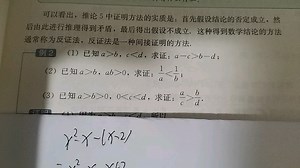 可以看出，推论5中证明方法的实质是，首先假设结论的否定成立，然
后由此进行推理得到矛盾，最后得出假设不成立．这种得到数学结论的方法
通常称为反证法，反证法是一种间接证明的方法．
(1) 已知a>b，c<d，求证：a-c>b-d；
(2) 已知a>b，ab>0，求证：1/a<1/b；
(3) 已知a>b>0，0<c<d，求证：a/c>b/d．
x²-x-(x-2)